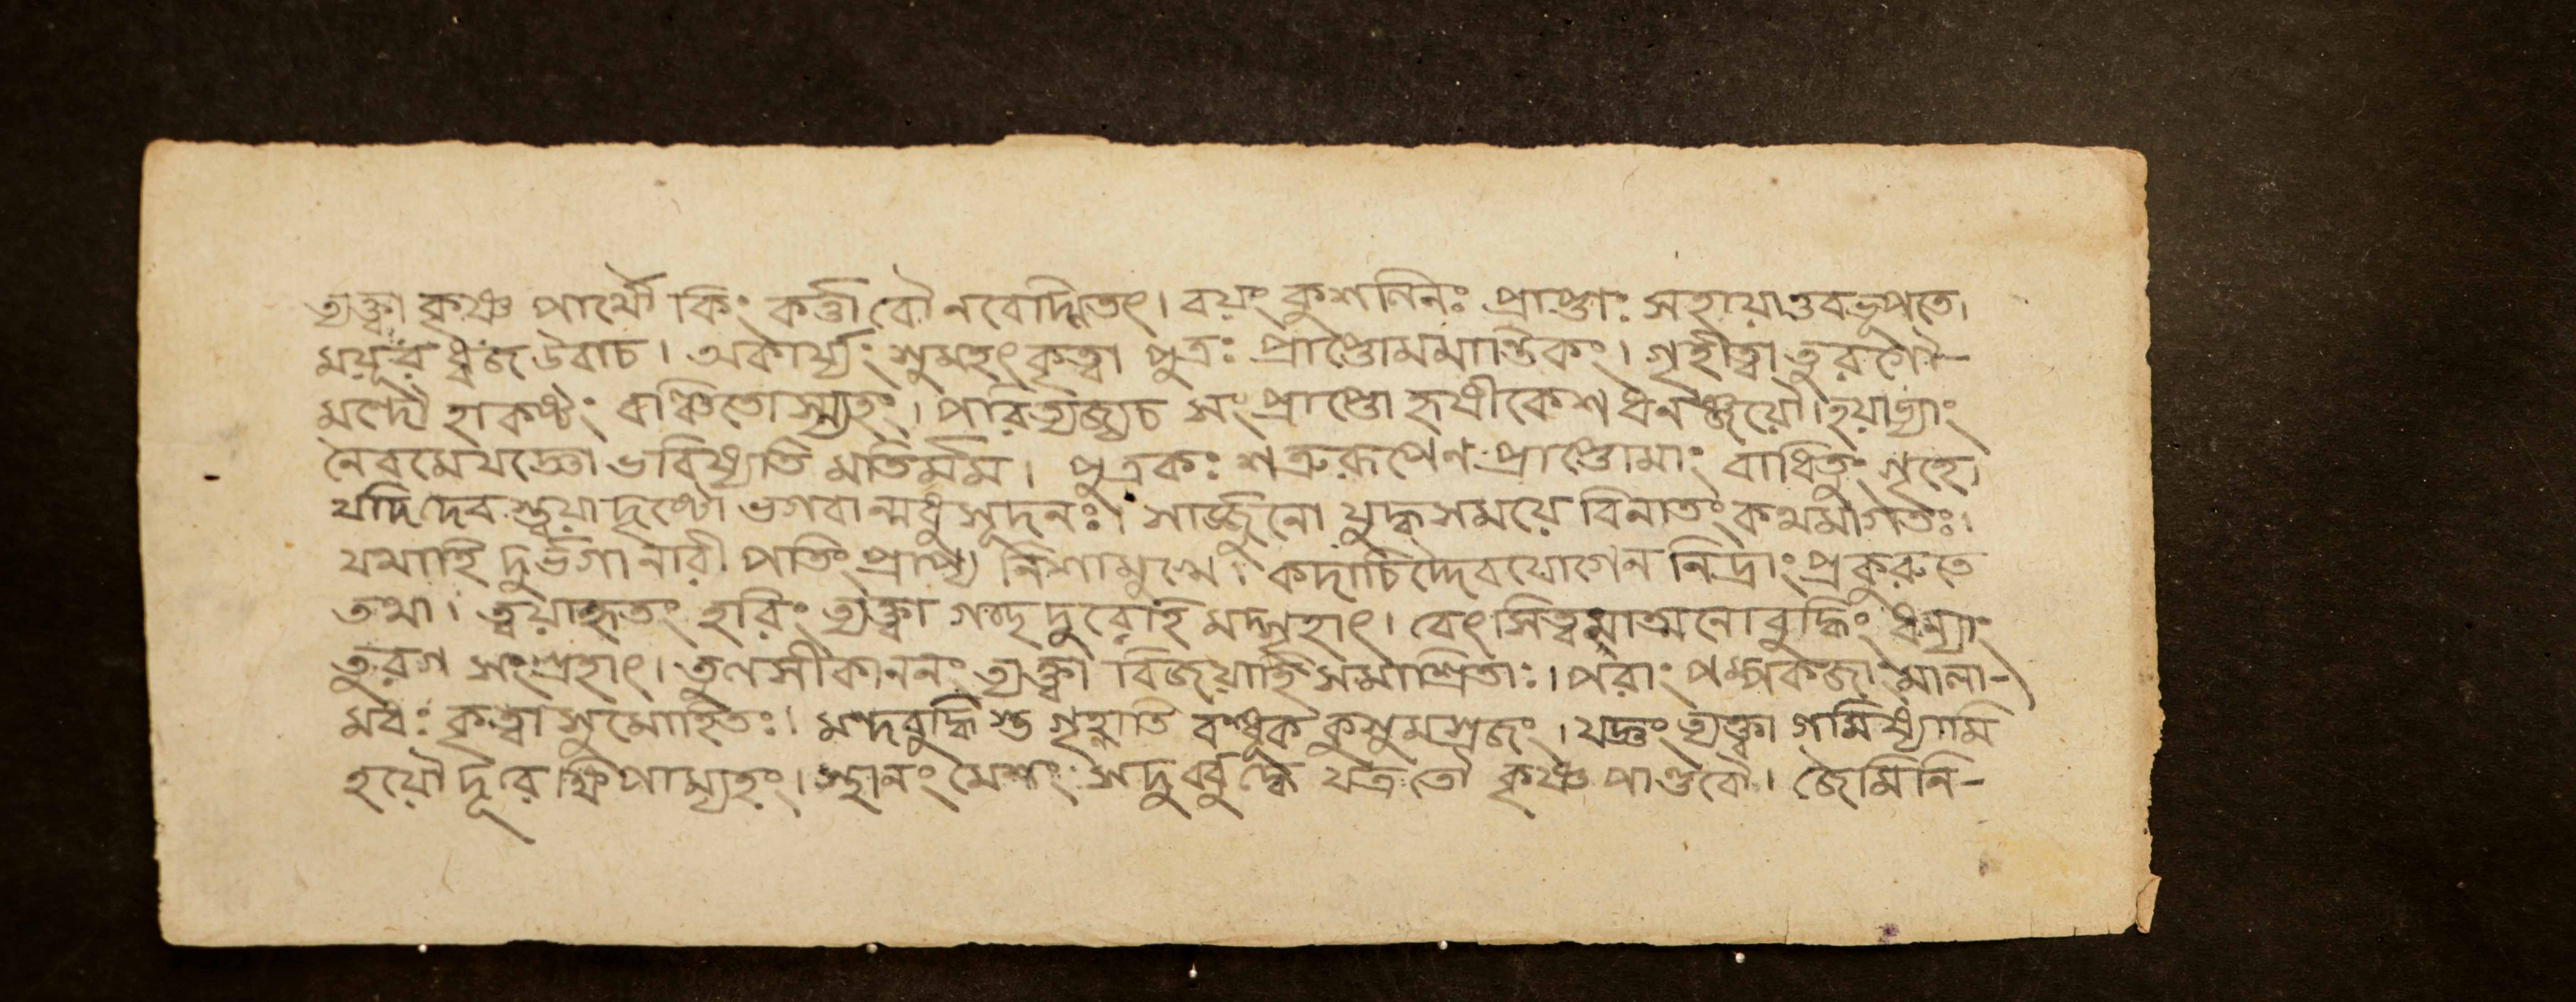 ত্যক্ত্বা কৃষ্ণ পার্থৌ কিং কর্ত্তা বৌ নবেদ্মিতৎ। বয়ং কুশলিনঃ প্রাপ্তাঃ সহায়াওবভূপতে।
ময়ূর ধ্বজ উবাচ। অকার্য্যং শুমহৎ কৃত্বা পুত্রঃ প্রাপ্তোমমান্তিকং। গৃহীত্বা তুরগৌ-
মন্দো হাকষ্টং বাঞ্চিতো স্ম্যহং। পরিত্যজ্যচ সংপ্রাপ্তো হৃষীকেশ ধনঞ্জয়ৌ। হয়াভ্যাং
নৈবমেযজ্ঞো ভবিষ্যতি মতির্মম। পুত্রকঃ শত্রুরূপেণ প্রাপ্তোমাং বাধিতুং গৃহে।
যদি দেব স্ত্বয়া দৃষ্টো ভগবান্মধুসূদনঃ। সার্জ্জুনো যুদ্ধসময়ে বিনাতং কথমাগতঃ।
যথাহি দুর্ভগা নারী পতিং প্রাপ্য নিশামুখে। কদাচিদ্দৈবযোগেন নিদ্রাং প্রকুরুতে
তথা। ত্বয়াহৃতং হরিং ত্যক্ত্বা গচ্ছ দুরোহি মদ্গৃহাৎ। বেৎসিত্বমাত্মনো বুদ্ধিং ধন্যাং
তুরগ সংগ্রহাৎ। তুলসীকাননং ত্যক্ত্বা বিজয়াহি সমাশ্রিতাঃ। পরাং পঙ্কজাং মালা-
মধঃ কৃত্বা সুমোহিতঃ। মন্দবুদ্ধিস্তু গৃহ্ণাতি বন্ধূক কুসুমস্রজং। যদ্রুং ত্যক্ত্বা গমিষ্যামি
হয়ৌ দূরে ক্ষিপাম্যহং। স্থানং মৈশং সদুর্ব্বুদ্ধে যত্র তৌ কৃষ্ণ পাণ্ডবৌ। জৈমিনি-